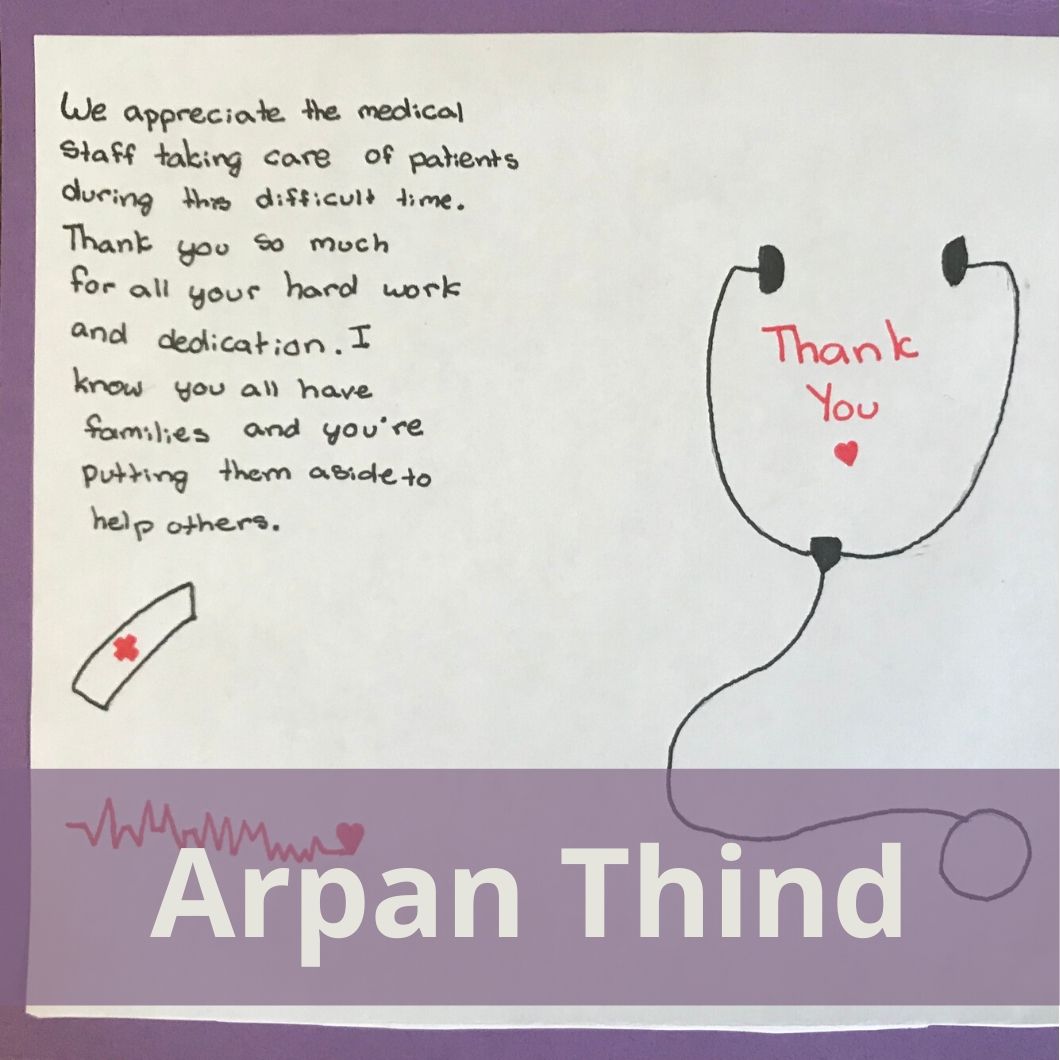 We appreciate the medical
Staff taking care of patients
during this difficult time.
Thank you so much
for all your hard work
and dedication. I
know you all have
families and you're
putting them aside to
help others.
Thank
You
Arpan Thind